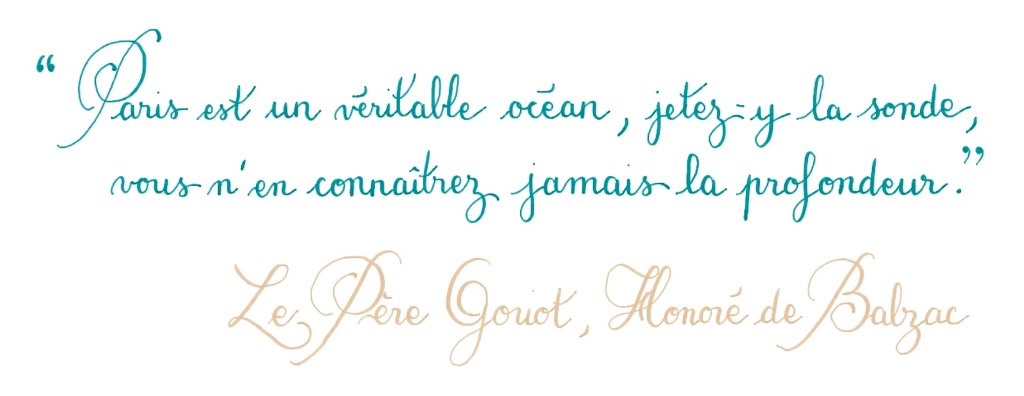 “Paris est un véritable océan, jetez-y la sonde,
vous n'en connaîtrez jamais la profondeur.”
Le Père Goriot, Honoré de Balzac